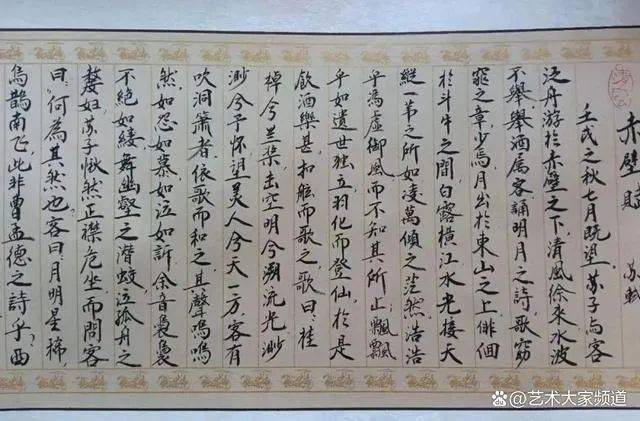 赤壁賦 苏軾
壬戌之秋七月既望，苏子与客
泛舟游於赤壁之下，清風徐来水波
不舉舉酒属客，誦明月之詩，歌窈
窕之章少焉，月出於東山之上，徘徊
於斗牛之間，白露横江水光接天
縱一苇之所如凌萬頃之茫然浩浩
乎馮虛御風而不知其所止，飄飄
乎如遺世独立羽化而登仙，於是
飲酒樂甚，扣舷而歌之，歌曰：桂
棹兮兰桨，击空明兮溯流光渺
渺兮予怀望美人兮天一方，客有
吹洞簫者，依歌而和之，其聲嗚嗚
然，如怨如慕如泣如訴，余音裊裊
不绝如縷，舞幽壑之潛蛟泣孤舟之
嫠妇，苏子愀然正襟危坐而問客
曰：何為其然也，客曰：月明星稀，
烏鵲南飞，此非曹孟德之詩乎，西
@艺术大家频道